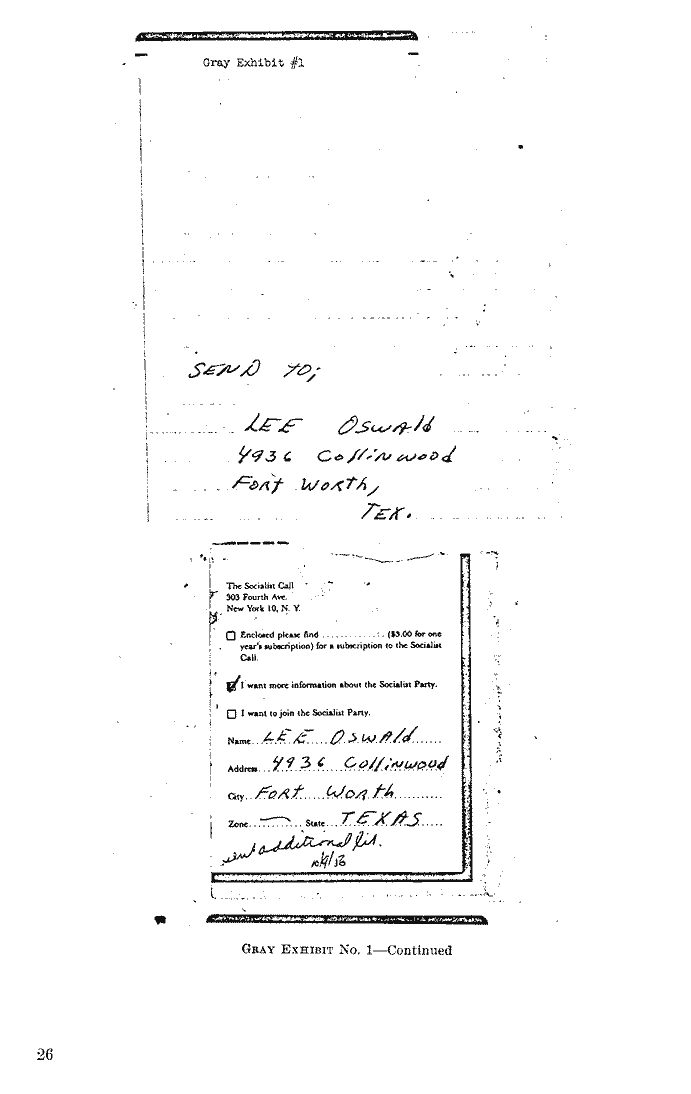 Gray Exhibit #1
SEND TO;
LEE OSwAld
4936 Collinwood
Fort Worth,
TEX.
The Socialist Call
303 Fourth Ave.
New York 10, N. Y.
Enclosed please find ............. ($3.00 for one
year's subscription) for a subscription to the Socialist
Call.
I want more information about the Socialist Party.
I want to join the Socialist Party.
Name LEE OSwAld
Address 4936 Collinwood
City FORT WORTH
Zone State TEXAS
sent additional lit.
GRAY EXHIBIT No. 1—Continued
26